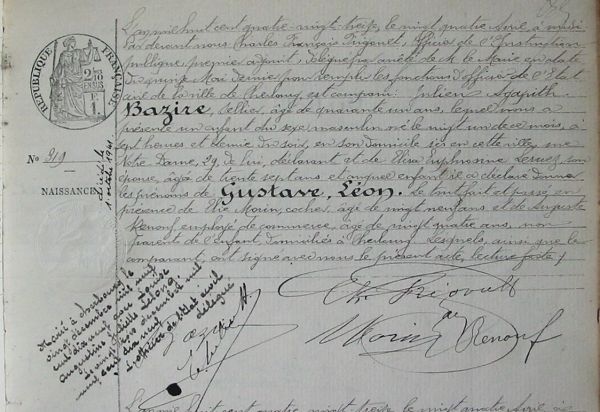 L'an mil huit cent quatre-vingt-treize, le vingt quatre Avril, à midi
Par devant nous Charles François Frigoult, Officier de l'Instruction
publique, premier adjoint, délégué par arrêté de M. le Maire en date
du quinze Mai dernier pour remplir les fonctions d'Officier de l'Etat
civil de la ville de Cherbourg est comparu: Julien Agapith
Bazire, sellier, âgé de quarante un ans, lequel nous a
présenté un enfant du sexe masculin né le vingt un de ce mois, à
sept heures et demie du soir, en son domicile sis en cette ville, rue
Notre Dame, 29, de lui, déclarant et de Euphrosine son
épouse, âgée de trente sept ans et auquel enfant il a déclaré donner
les prénoms de Gustave, Léon. Le tout fait et passé en
présence de Elie Morin, cocher, âgé de vingt neuf ans et de Auguste
Renouf, employé de commerce, âgé de vingt quatre ans, non
parents de l'enfant, domiciliés à Cherbourg. Lesquels, ainsi que le
comparant, ont signé avec nous le présent acte, lecture faite /.
REPUBLIQUE FRANÇAISE
No 319
NAISSANCE
décédé le
1 octobre 1941
Marié à Cherbourg le
vingt décembre mil neuf
cent dix neuf avec Louise
Augustine
Le vingt décembre mil
neuf cent dix neuf
L'officier de l'Etat civil
délégué
Bazire
Morin
Renouf
L'an mil huit cent quatre-vingt-treize, le vingt quatre Avril